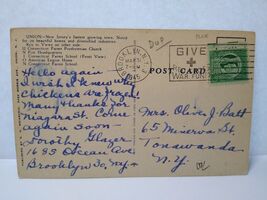 UNION—New Jersey's fastest growing town. Noted
for its beautiful homes and diversified industries.
Key to Views on other side:
Connecticut Farms Presbyterian Church
First Headquarters
Connecticut Farms School (Front View)
American Legion Home
Connecticut Farms School
Hello again
Chickens are fresh!
Many thanks for
Niagara St. Come
again soon -
Dorothy Glazer
1685 Ocean Ave.
Brooklyn 30, N.Y.
Dup
BROOKLYN, N.Y.
1945
GIVE
+
WAR FUND
POST CARD
Mrs. Oliver J. Batt
65 Minerva St.
Tonawanda
N.Y.